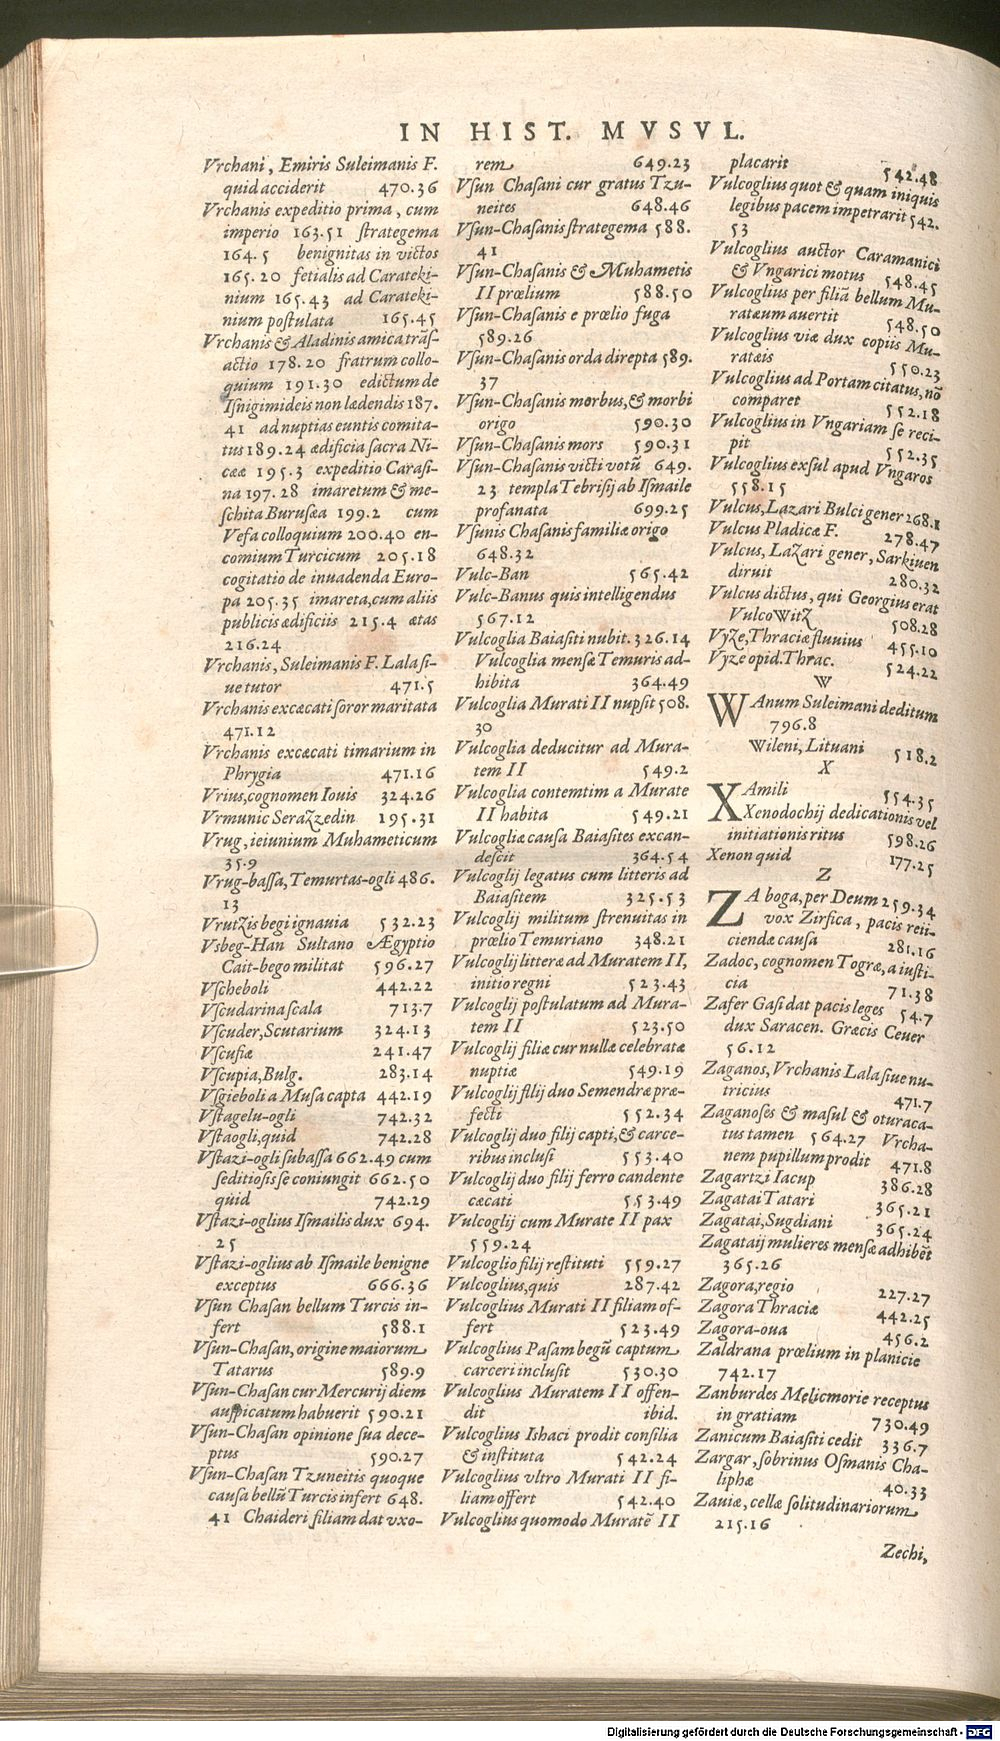 IN HIST. MVSVL.
Vrchani, Emiris Suleimanis F.
quid acciderit 470.36
Vrchanis expeditio prima, cum
imperio 163.51 ſtrategema
164.5 benignitas in victos
165.20 fetialis ad Carateki-
nium 165.43 ad Carateki-
nium poſtulata 165.45
Vrchanis & Aladinis amica trãſ-
actio 178.20 fratrum collo-
quium 191.30 edictum de
Iſnigimideis non lædendis 187.
41 ad nuptias euntis comita-
tus 189.24 ædificia ſacra Ni-
cææ 195.3 expeditio Caraſi-
na 197.28 imaretum & me-
ſchita Buruſæa 199.2 cum
Vefa colloquium 200.40 en-
comium Turcicum 205.18
cogitatio de inuadenda Euro-
pa 205.35 imareta, cum aliis
publicis ædificiis 215.4 ætas
216.24
Vrchanis, Suleimanis F. Lala ſi-
ue tutor 471.5
Vrchanis excæcati ſoror maritata
471.12
Vrchanis excæcati timarium in
Phrygia 471.16
Vrius, cognomen Iouis 324.26
Vrmunic Serazzedin 195.31
Vrug, ieiunium Muhameticum
35.9
Vrug-baſſa, Temurtas-ogli 486.
13
Vrutzis begi ignauia 532.23
Vsbeg-Han Sultano Ægyptio
Cait-bego militat 596.27
Vſcheboli 442.22
Vſcudarina ſcala 713.7
Vſcuder, Scutarium 324.13
Vſcufiæ 241.47
Vſcupia, Bulg. 283.14
Vſgieboli a Muſa capta 442.19
Vſtagelu-ogli 742.32
Vſtaogli, quid 742.28
Vſtazi-ogli ſubaſſa 662.49 cum
ſeditioſis ſe coniungit 662.50
quid 742.29
Vſtazi-oglius Iſmailis dux 694.
25
Vſtazi-oglius ab Iſmaile benigne
exceptus 666.36
Vſun Chaſan bellum Turcis in-
fert 588.1
Vſun-Chaſan, origine maiorum
Tatarus 589.9
Vſun-Chaſan cur Mercurij diem
auſpicatum habuerit 590.21
Vſun-Chaſan opinione ſua dece-
ptus 590.27
Vſun-Chaſan Tzuneitis quoque
cauſa bellũ Turcis infert 648.
41 Chaideri filiam dat vxo-
rem 649.23
Vſun Chaſani cur gratus Tzu-
neites 648.46
Vſun-Chaſani ſtrategema 588.
41
Vſun-Chaſanis & Muhametis
II prœlium 588.50
Vſun-Chaſanis e prœlio fuga
589.26
Vſun-Chaſanis orda direpta 589.
37
Vſun-Chaſanis morbus, & morbi
origo 590.30
Vſun-Chaſanis mors 590.31
Vſun-Chaſanis victi votũ 649.
23 templa Tebriſij ab Iſmaile
profanata 699.25
Vſunis Chaſanis familiæ origo
648.32
Vulc-Ban 565.42
Vulc-Banus quis intelligendus
567.12
Vulcoglia Baiaſiti nubit. 326.14
Vulcoglia menſæ Temuris ad-
hibita 364.49
Vulcoglia Murati II nupſit 508.
30
Vulcoglia deducitur ad Mura-
tem II 549.2
Vulcoglia contemtim a Murate
II habita 549.21
Vulcogliæ cauſa Baiaſites excan-
deſcit 364.54
Vulcoglij legatus cum litteris ad
Baiaſitem 325.53
Vulcoglij militum ſtrenuitas in
prœlio Temuriano 348.21
Vulcoglij litteræ ad Muratem II,
initio regni 523.43
Vulcoglij poſtulatum ad Mura-
tem II 523.50
Vulcoglij filiæ cur nullæ celebratæ
nuptiæ 549.19
Vulcoglij filij duo Semendræ præ-
fecti 552.34
Vulcoglij duo filij capti, & carce-
ribus incluſi 553.40
Vulcoglij duo filij ferro candente
cæcati 553.49
Vulcoglij cum Murate II pax
559.24
Vulcoglio filij reſtituti 559.27
Vulcoglius, quis 287.42
Vulcoglius Murati II filiam of-
fert 523.49
Vulcoglius Paſam begũ captum
carceri incluſit 530.30
Vulcoglius Muratem II offen-
dit ibid.
Vulcoglius Ishaci prodit conſilia
& inſtituta 542.24
Vulcoglius vltro Murati II fi-
liam offert 542.40
Vulcoglius quomodo Muratẽ II
placarit 542.48
Vulcoglius quot & quam iniquis
legibus pacem impetrarit 542.
53
Vulcoglius auctor Caramanici
& Vngarici motus 548.45
Vulcoglius per filiã bellum Mu-
ratæum auertit 548.50
Vulcoglius viæ dux copiis Mu-
ratæis 550.23
Vulcoglius ad Portam citatus, nõ
comparet 552.18
Vulcoglius in Vngariam ſe reci-
pit 552.35
Vulcoglius exſul apud Vngaros
558.15
Vulcus, Lazari Bulci gener 268.1
Vulcus Pladicæ F. 278.47
Vulcus, Lazari gener, Sarkiuen
diruit 280.32
Vulcus dictus, qui Georgius erat
VulcoWitz 508.28
Vyze, Thraciæ fluuius 455.10
Vyze opid. Thrac. 524.22
W
WAnum Suleimani deditum
796.8
Wileni, Lituani 518.2
X
XAmili 554.35
Xenodochij dedicationis vel
initiationis ritus 598.26
Xenon quid 177.25
Z
ZA boga, per Deum 259.34
vox Zirfica, pacis reti-
ciendæ cauſa 281.16
Zadoc, cognomen Togræ, a iuſti-
cia 71.38
Zafer Gaſi dat pacis leges 54.7
dux Saracen. Græcis Ceuer
56.12
Zaganos, Vrchanis Lala ſiue nu-
tricius 471.7
Zaganoſes & maſul & oturaca-
tus tamen 564.27 Vrcha-
nem pupillum prodit 471.8
Zagartzi Iacup 386.28
Zagatai Tatari 365.21
Zagatai, Sugdiani 365.24
Zagataij mulieres menſæ adhibẽt
365.26
Zagora, regio 227.27
Zagora Thraciæ 442.25
Zagora-oua 456.2
Zaldrana prœlium in planicie
742.17
Zanburdes Melicmorie receptus
in gratiam 730.49
Zanicum Baiaſiti cedit 336.7
Zargar, ſobrinus Oſmanis Cha-
liphæ 40.33
Zauiæ, cellæ ſolitudinariorum
215.16
Zechi,
Digitalisierung gefördert durch die Deutsche Forschungsgemeinschaft - DFG